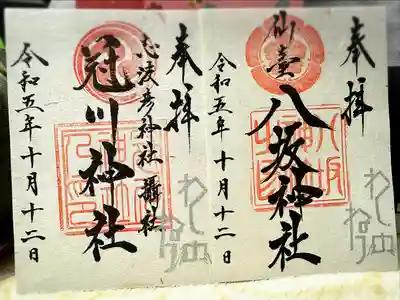 奉拝
仙臺
八坂神社
令和五年十月十二日
奉拝
志波彦神社 摂社
冠川神社
令和五年十月十二日